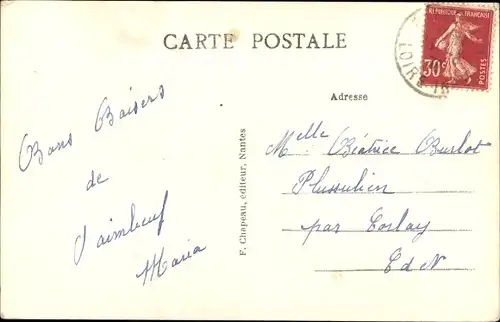 CARTE POSTALE
REPUBLIQUE FRANÇAISE
30c
POSTES
LOIRE IN
Adresse
Bons Baisers
de
Paimboeuf
Maria
F. Chapeau, éditeur, Nantes
Melle Béatrice Burlot
Plussulien
par Corlay
C d N